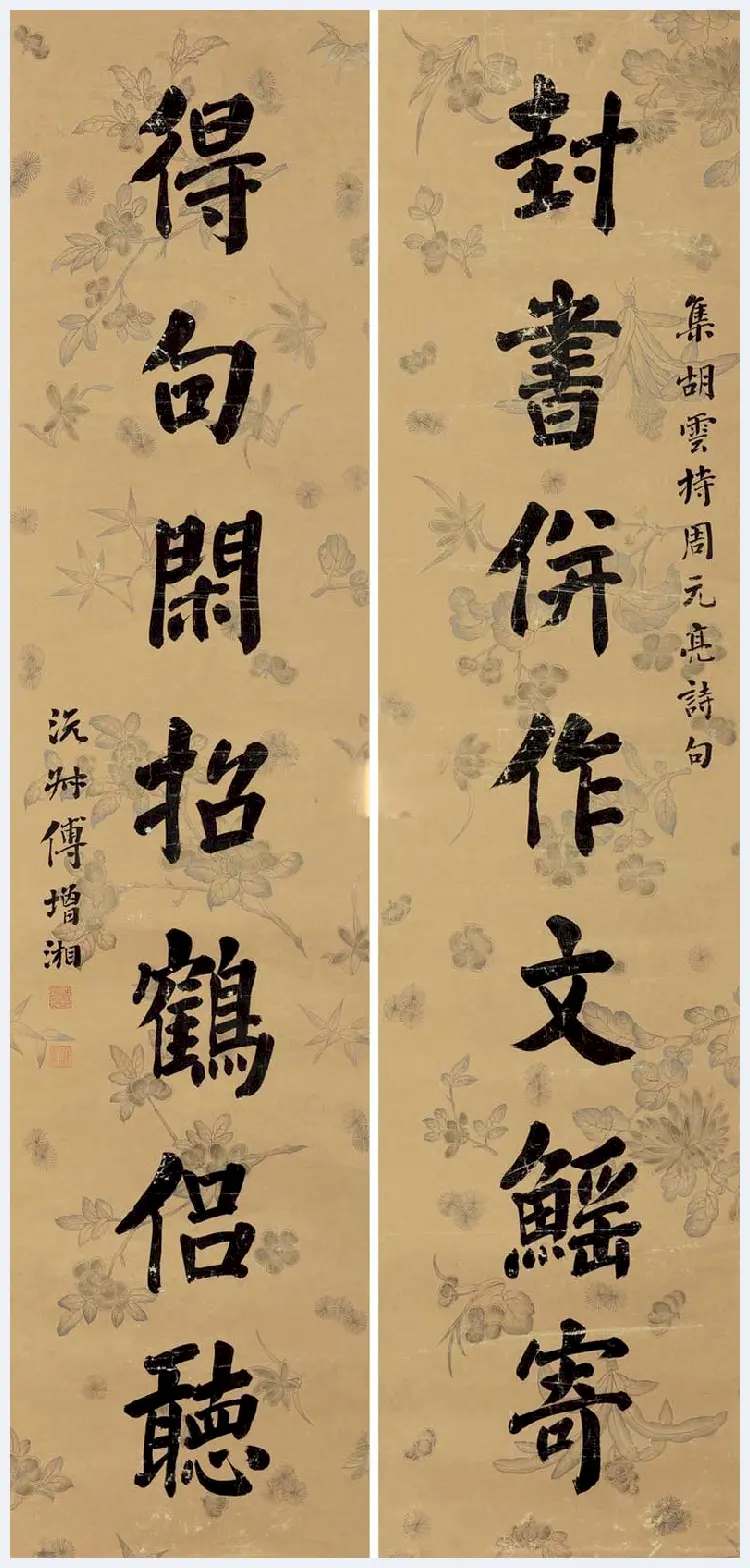 集胡雲持周元亮詩句
封書併作文鰩寄
得句閑招鶴侶聽
沅叔傅增湘